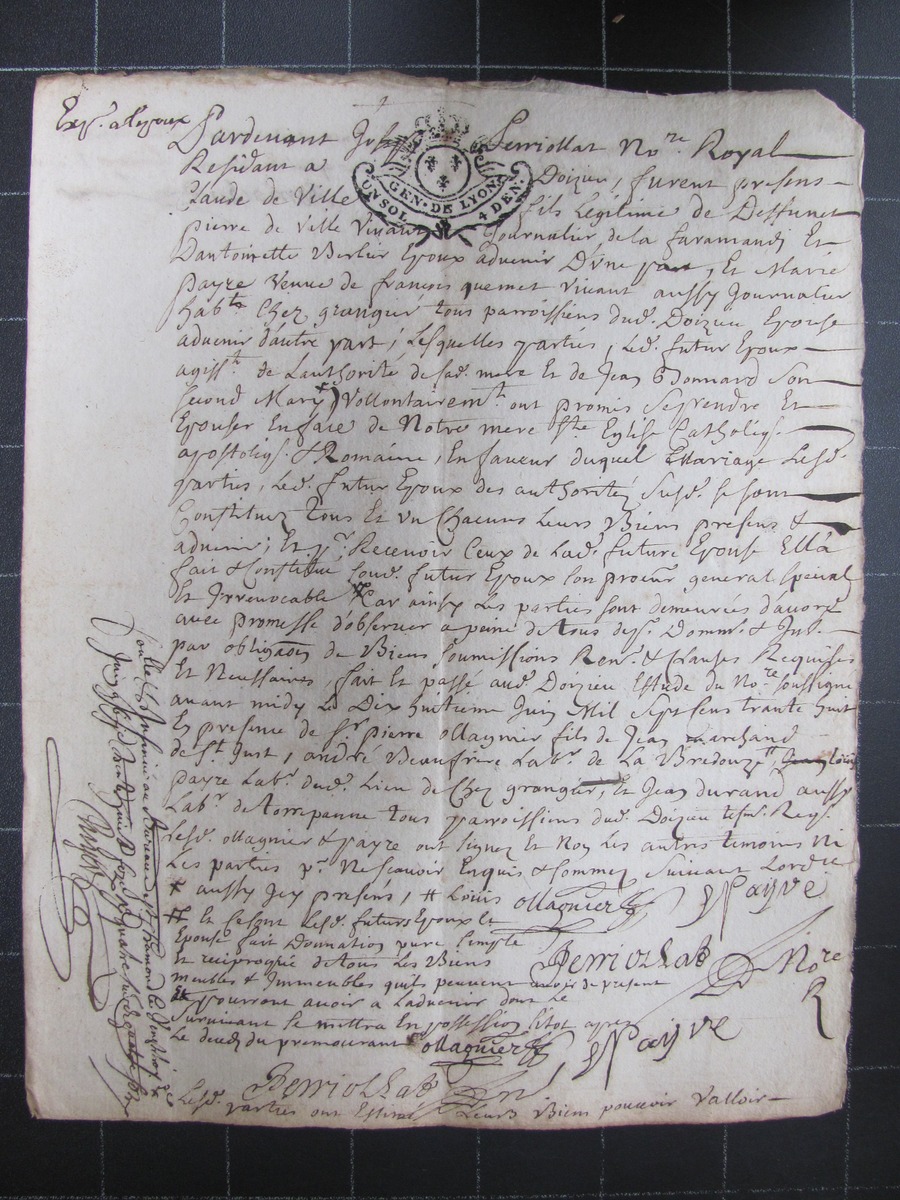 Exp. a l'epoux
Pardevant Joseph Perriollat No.re Royal
Residant a Doizieu, furent presens
Claude de Ville fils Legitime de Deffunct
GEN. DE LYON
UN SOL 4 DEN.
pierre de Ville Vivant Journalier de la faramandj Et
Dantoinette Verlier Epoux advenir D'une part, Et Marie
payre veuve de francois quemet vivant aussy Journalier
hab.te Chez grangier tous parroissiens dud. Doizieu Epouse
advenir d'autre part; Lesquelles parties, Led. futur Epoux
agiss.t de Lauthorité de sad. mere Et de Jean Bonnard son
second Mary Vollontairem.t ont promis se prendre Et
Epouser En face de Notre mere S.te Eglise Catholiq.
apostoliq. & Romaine, En faveur duquel Mariage Lesd.
parties, Led. futur Epoux des authorités susd. se sont
Constituez tous Et un Chacuns Leurs Biens presens &
advenir; Et p.r Recevoir Ceux de Lad. future Epouse Ella
fait & Constitue Led. futur Epoux son procur general special
Et Irrevocable Car ainsy Les parties sont demeurées d'accord
avec promesse d'observer a peine de tous desp. Domm. & Int.
par obligãons de Biens soumissions Ren. & Clauses Requises
Et Necessaires, fait Et passé aud. Doizieu Estude du No.re soussigné
avant midy Le Dix huitieme Juin Mil Sept Cens trante huit
En presence de S.r pierre ollagnier fils de Jean marchand
de S.t Just, andré Beaufrere Lab.r de La Bredouze,
payre Lab.r dud. Lieu de Chez grangier, Et Jean durand aussy
Lab.r de tous parroissiens dud. Doizieu tesm. Req.
Lesd. ollagnier & payre ont signez Et Non Les autres temoins Ni
Les parties p.r Ne scavoir Enquis & sommez suivant Lordce
aussy Jcy presens, # Louis ollagnier Payre
# Et se sont Lesd. futurs Epoux le
Epouse fait Donnation pure simple
Et reciproque de tous Les Biens
meubles & Immeubles quils peuvent avoir de present
pourront avoir a Ladvenir dont Le
Survivant se mettra En possession sitot apres
Le deces du premourant ollagnier Payre
Perriollat No.re R
Perriollat
Lesd. parties ont Estimé Leurs Biens pouvoir Valloir